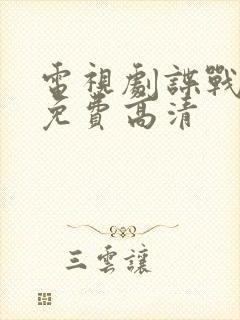 電視劇諜戰
免費高清
三雲讓